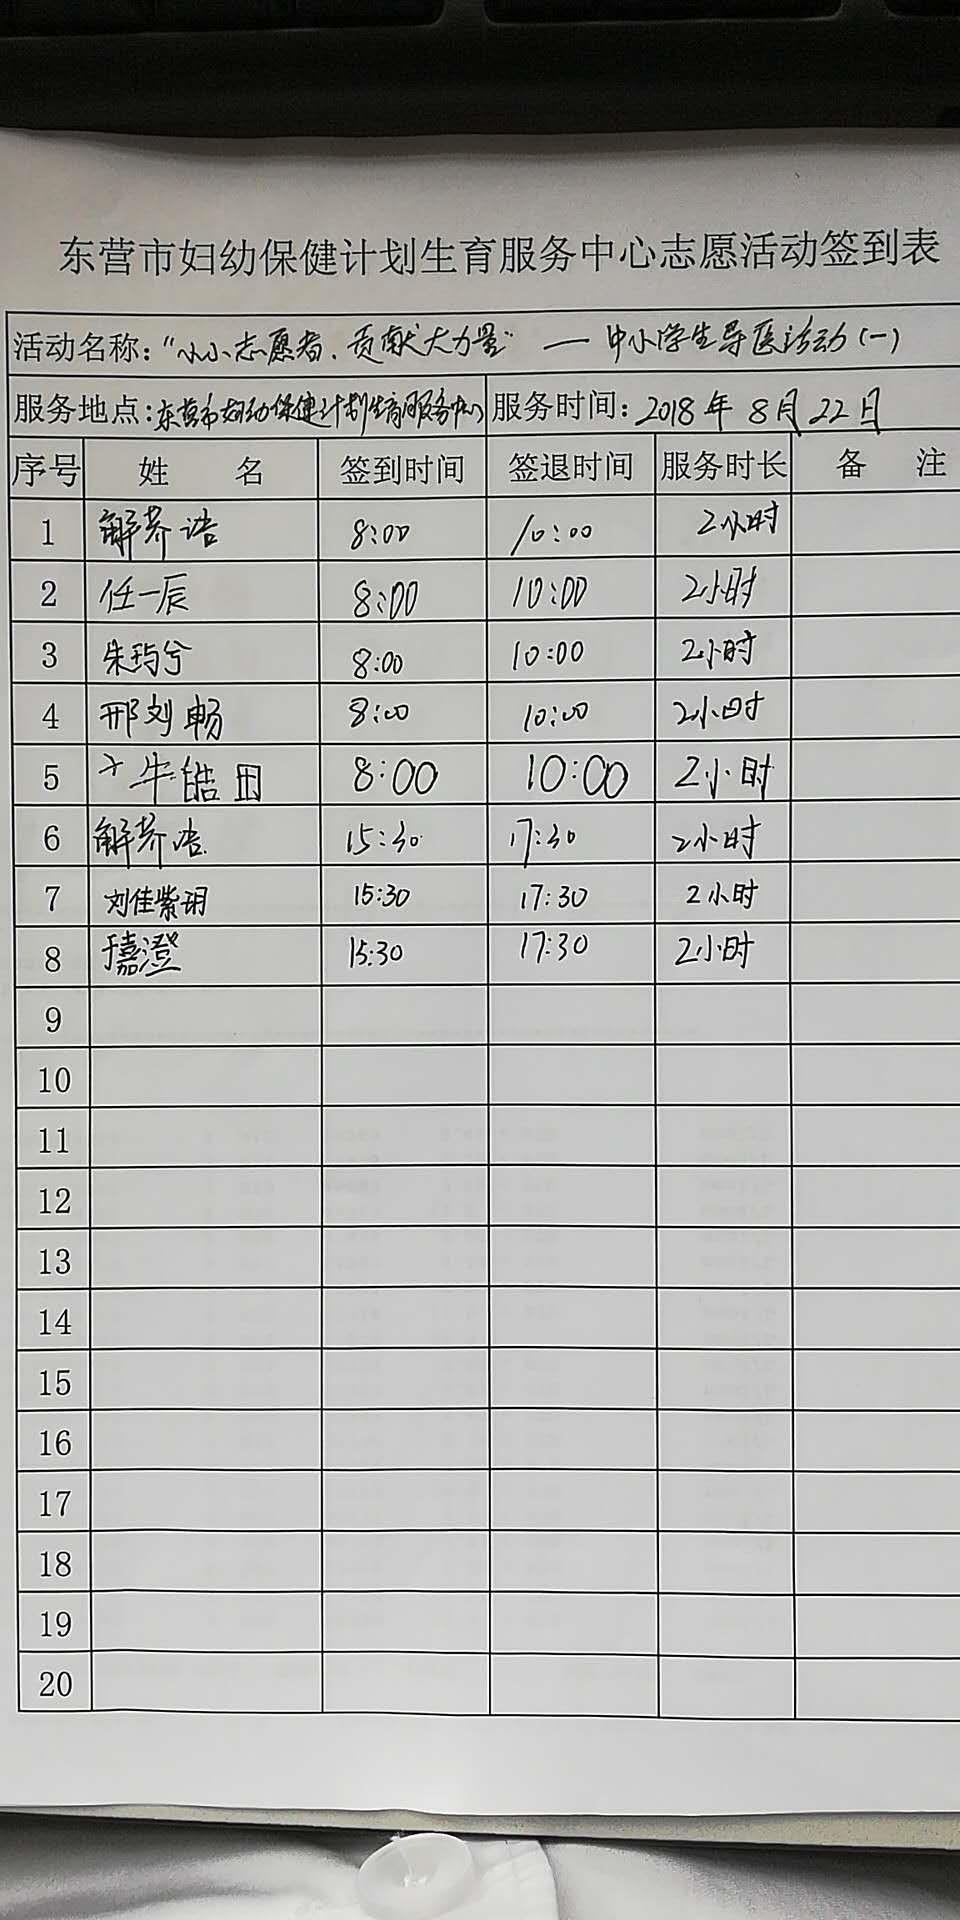 东营市妇幼保健计划生育服务中心志愿活动签到表
活动名称：“小小志愿者、贡献大力量” — 中小学生导医活动（一）
服务地点：东营市妇幼保健计划生育服务中心 服务时间：2018年8月22日
序号 姓 名 签到时间 签退时间 服务时长 备 注
1 解荞浩 8:00 10:00 2小时
2 任一辰 8:00 10:00 2小时
3 朱玙兮 8:00 10:00 2小时
4 邢刘畅 8:00 10:00 2小时
5 8:00 10:00 2小时
6 解荞浩 15:30 17:30 2小时
7 刘佳紫玥 15:30 17:30 2小时
8 于嘉澄 15:30 17:30 2小时
9
10
11
12
13
14
15
16
17
18
19
20